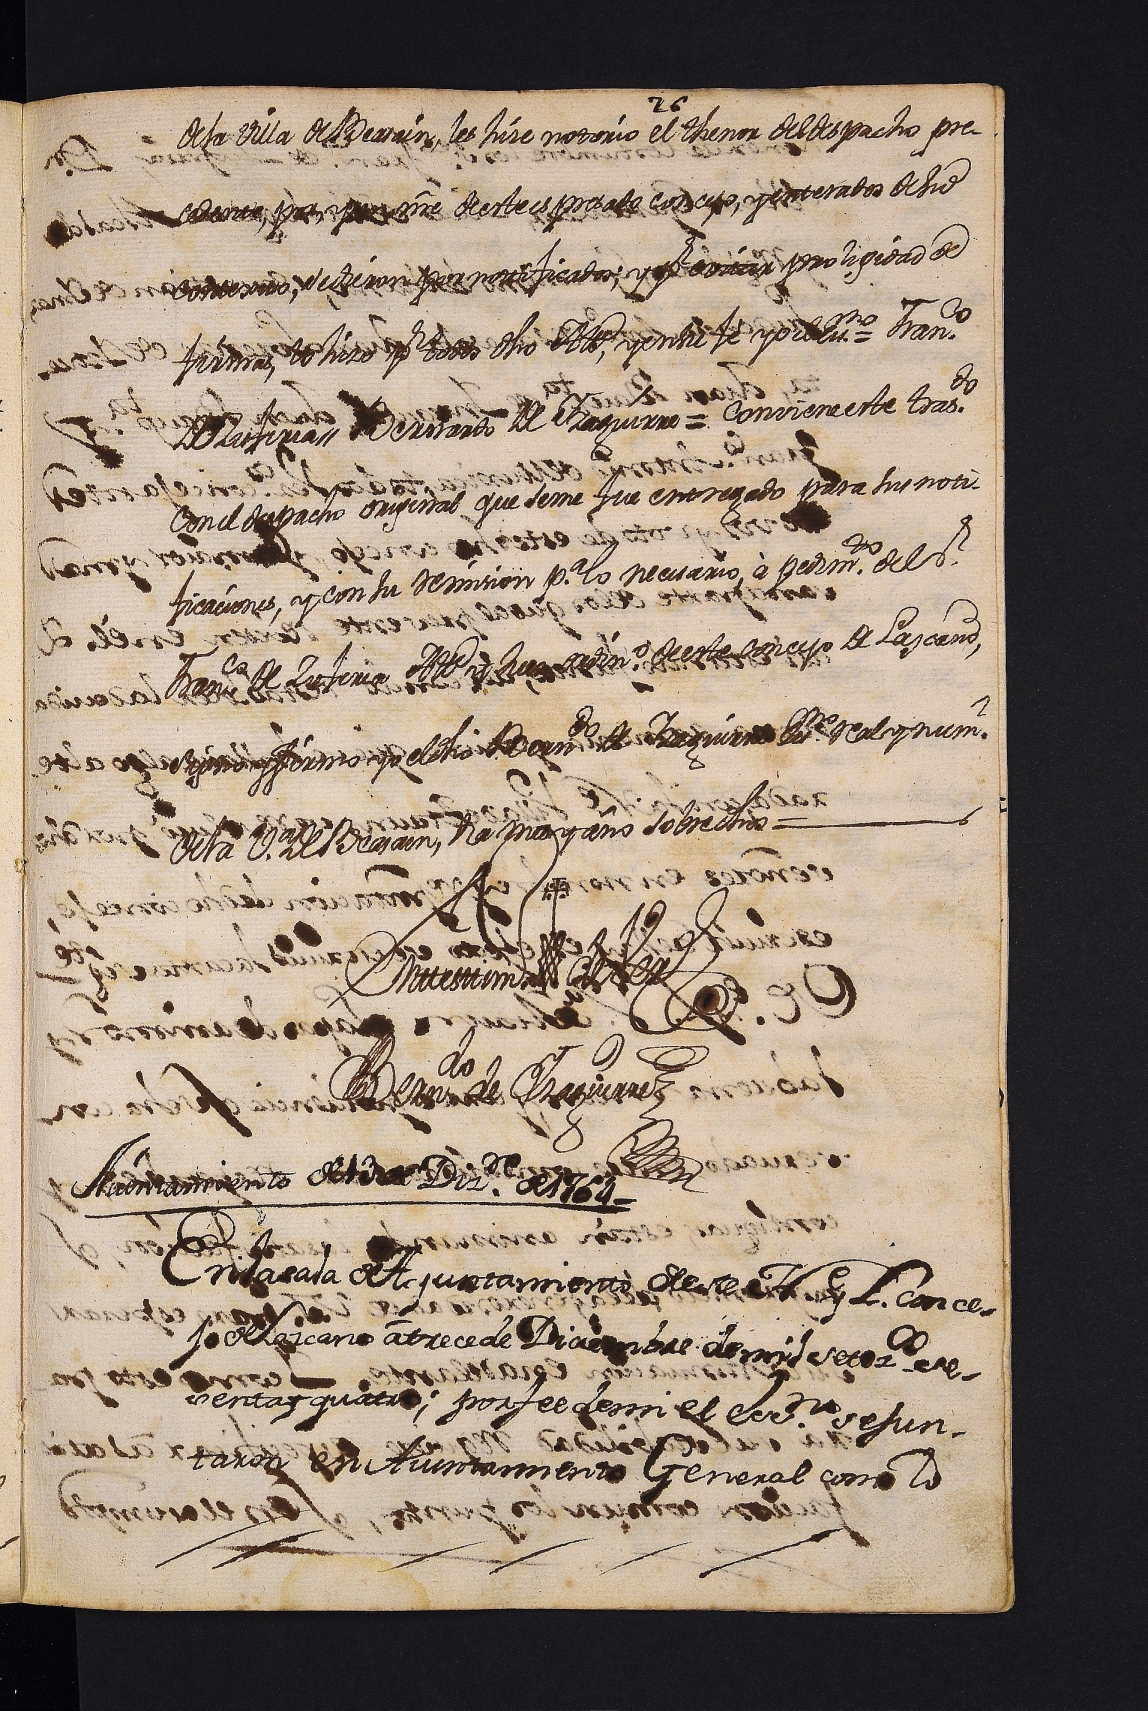 26
de la villa de Beasain, les hize notorio el thenor del despacho pre-
cedente, por, y en vrê de este expresado concejo, y enterados de su
contexto, se dieron por notificados; y pr evitar proligidad de
firmas, lo hizo pr todos dho Alde, y en fee yo el Essno = Franco
de Zuferia // Bernardo de Yzaguirre = Conviene este trasdo
Con el despacho original que se me fue entregado para sus noti-
ficaciones, y con su remision pa lo necesario, à pedimto del Sr
Franco de Zuferia Alde y Juez ordino de este concejo de Lazcano,
signo y firmo yo el dho Berndo de Yzaguirre Essno real y numl
de la Va de Beasain, dia mes y año sobre dhos =
En testimo de Verd
Berndo de Yzaguirre
Aiuntamiento de 13 de Dizre de 1764 =
En la sala de Ajuntamiento de este N. y L. conce-
jo de Lazcano â trece de Diciembre de mil setezos sese-
senta y quatro; por fee de mi el essno se jun-
taron en Aiuntamiento General como lo